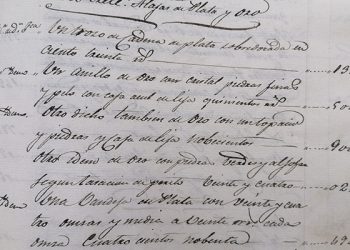 Alajas de Plata y oro
Un trozo de cadena de plata sobredorada en
ciento treinta r.^s 13
Un anillo de oro con cristal piedras finas
y pelo con caja azul de lija quinientos r.^s 50
Otro dicho tambien de oro con
y piedras y caja de lija nobecientos 900
Otro idem de oro con piedras y aljofar
segun tasacion de perito veinte y cuatro 02
Una Bandeja de Plata con veinte y cua
tro onzas y media a veinte r.^s cada
onza Cuatrocientos nobenta 4